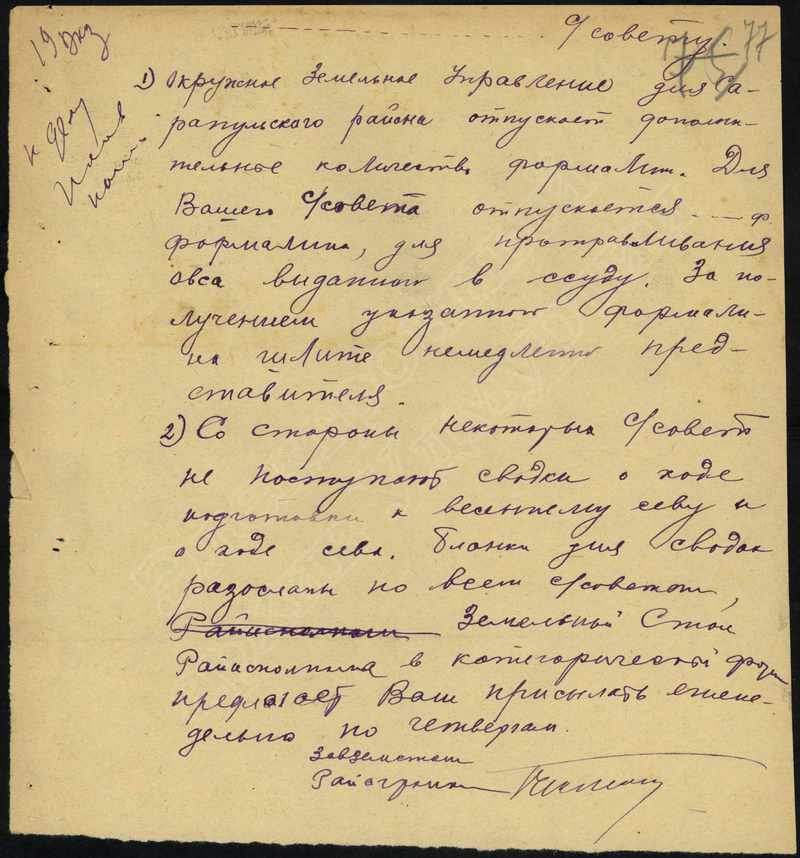 С/совету.
77
19 экз
к делу
1) Окружное Земельное Управление для Са-
рапульского района отпускает дополни-
тельное количество формалин. Для
Вашего С/совета отпускается ---- ф.
формалина, для протравливания
овса выданной в ссуду. За по-
лучением указанной формали-
на шлите немедленно пред-
ставителя.
2) Со стороны некоторых С/совет
не поступают сводки о ходе
подготовки к весеннему севу и
о ходе сева. Бланки для сводок
разосланы по всем с/советам,
Райисполком Земельный Стол
Райисполкома в категорической форме
предлагает Вам присылать ежене-
дельно по четвергам.
Завземстолом